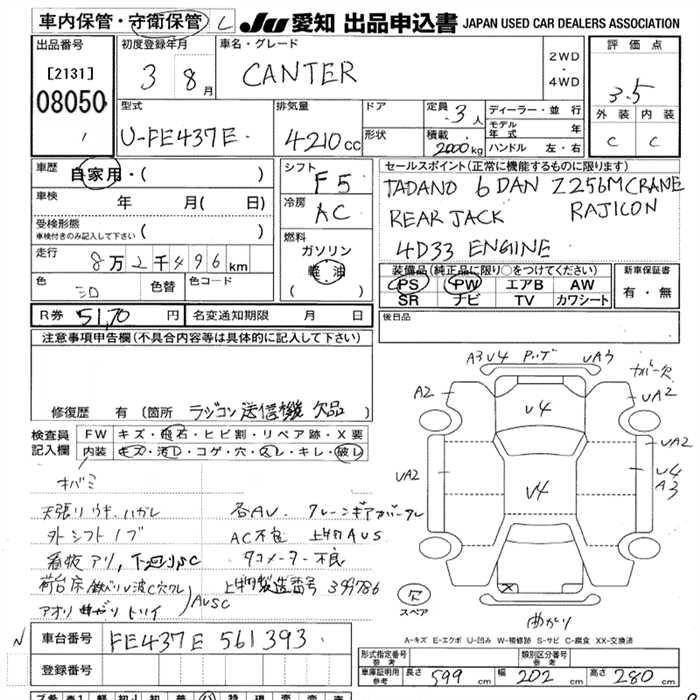 車内保管・守衛保管 L JU 愛知 出品申込書 JAPAN USED CAR DEALERS ASSOCIATION
出品番号 初度登録年月 車名・グレード 2WD ・ 4WD 評価点
[2131] 3 8月 CANTER 3.5
08050 型式 排気量 ドア 定員 3人 ディーラー・並行 外装 内装
U-FE437E 4210cc 形状 積載 2000kg モデル年式 年 C C
ハンドル 左・右
車歴 自家用・( ) シフト F5 セールスポイント(正常に機能するものに限ります)
車検 年 月( 日) 冷房 AC TADANO 6DAN Z256M CRANE
受検形態 REAR JACK RAJICON
車検付きのみ記入して下さい ( ) 燃料 4D33 ENGINE
走行 8万2千496km ガソリン 装備品(純正品に限り○をつけてください) 新車保証書
色 シロ 色替 色コード 軽油 PS PW エアB AW 有・無
( ) SR ナビ TV カワシート
R券 5170円 名変通知期限 月 日 後日品
注意事項申告欄(不具合内容等は具体的に記入して下さい)
A3 V4 UA3
A2 V4 UA2
修復歴 有(箇所 ラジコン送信機 欠品)
検査員 FW キズ・飛石・ヒビ割・リペア跡・X要
記入欄 内装 キズ・汚レ・コゲ・穴・スレ・キレ・破レ
UA2
UA2 V4 V4
A3
天張リ ハガレ 各AU.
外シフトノブ AC不良 上物AUS
看板アリ、下廻りSC タコメーター不良
荷台床 波C穴ワレ 上物製造番号 399786
アオリ AUSC
欠 スペア
曲がり
A-キズ E-エクボ U-凹み W-補修跡 S-サビ C-腐食 XX-交換済
N 車台番号 FE437E 561393
登録番号
形式指定番号 参考 類別区分番号 参考
車庫証明用 参考 長さ 599cm 幅 202cm 高さ 280cm